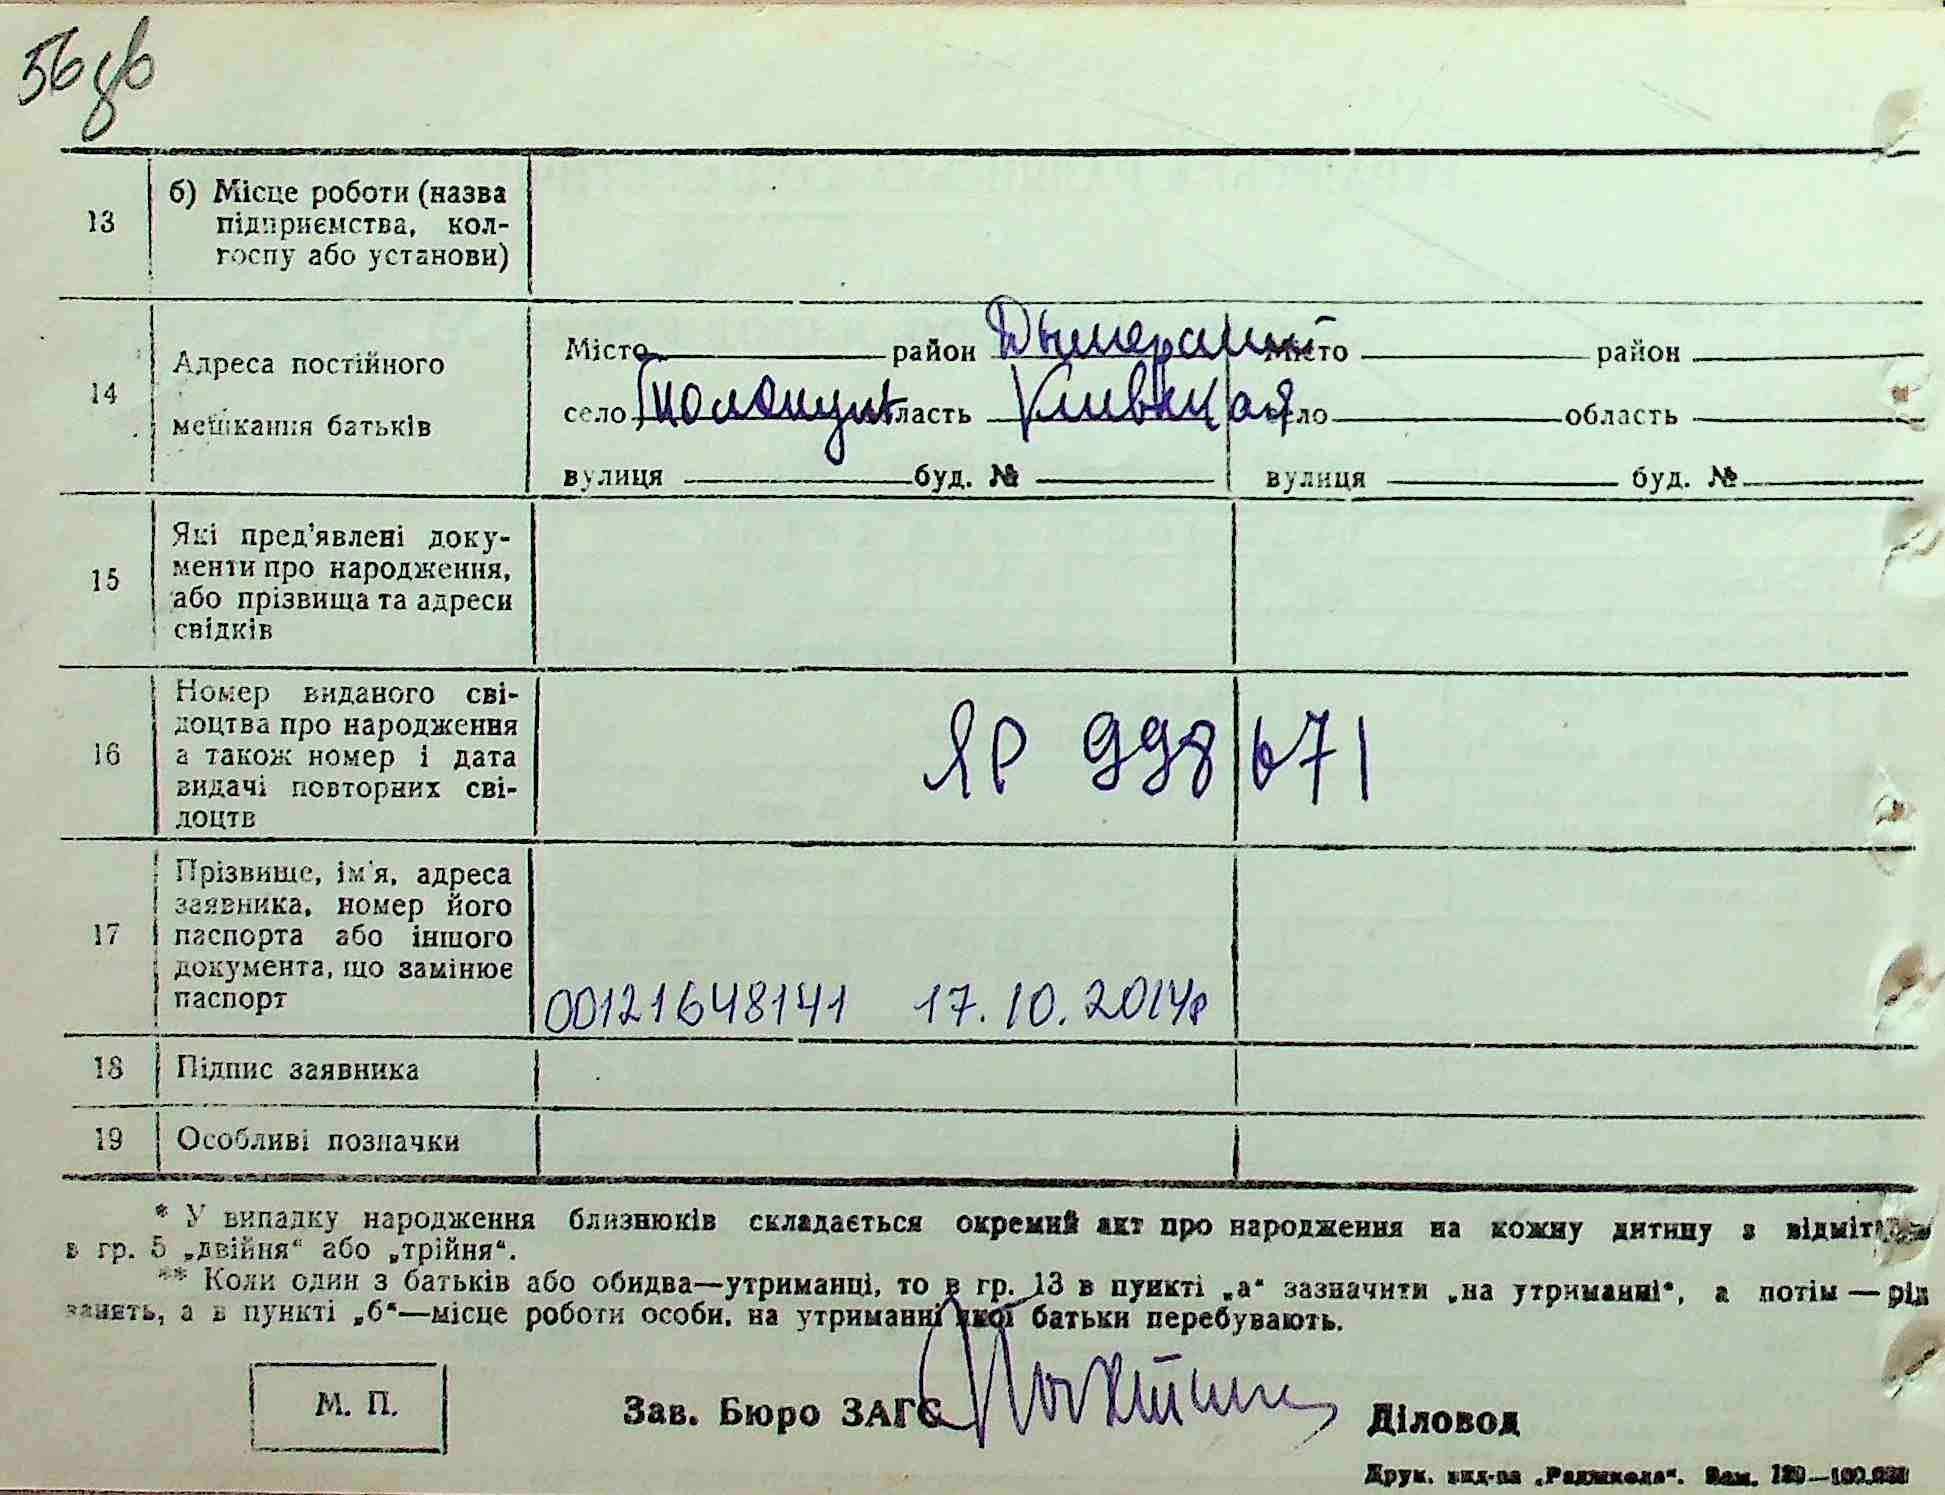 56 зв
13 б) Місце роботи (назва
підприємства, кол-
госпу або установи)
14 Адреса постійного
мешкання батьків
Місто район Дымерский Місто район
село область Киевская село область
вулиця буд. № вулиця буд. №
15 Які пред'явлені доку-
менти про народження,
або прізвища та адреси
свідків
16 Номер виданого сві-
доцтва про народження
а також номер і дата
видачі повторних сві-
доцтв
ЯР 998671
17 Прізвище, ім'я, адреса
заявника, номер його
паспорта або іншого
документа, що замінює
паспорт
00121648141 17.10.2014р
18 Підпис заявника
19 Особливі позначки
* У випадку народження близнюків складається окремий акт про народження на кожну дитину з
в гр. 5 „двійня“ або „трійня“.
** Коли один з батьків або обидва—утриманці, то в гр. 13 в пункті „а“ зазначити „на утриманні“, а потім — рід
занять, а в пункті „б“—місце роботи особи, на утриманні якої батьки перебувають.
М. П.
Зав. Бюро ЗАГС
Діловод
Друк. вид-ва „Радшкола“. Зам.